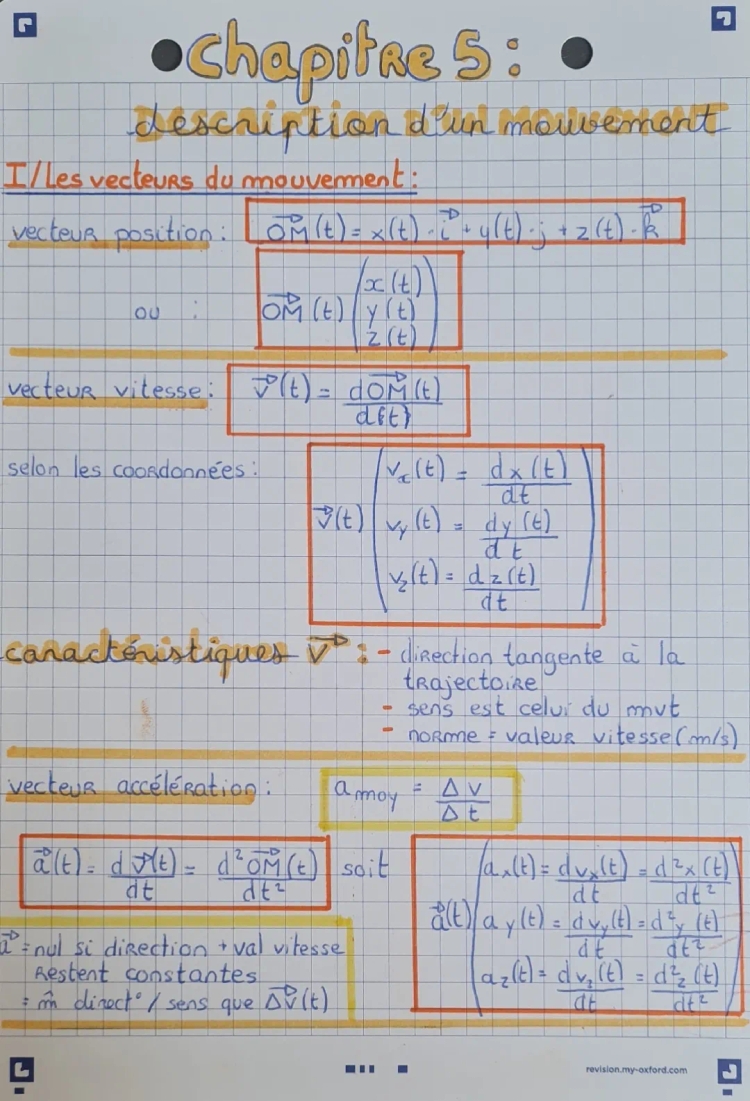 Chapitre 5 :
description d'un mouvement
I/Les vecteurs du mouvement :
vecteur position : OM⃗(t) = x(t)·i⃗ + y(t)·j + z(t)·k⃗
ou : OM⃗(t) (x(t)
y(t)
z(t))
vecteur vitesse : v⃗(t) = dOM⃗(t)/d(t)
selon les coordonnées :
v⃗(t) (vx(t) = dx(t)/dt
vy(t) = dy(t)/dt
vz(t) = dz(t)/dt)
caractéristiques v⃗ : - direction tangente à la
trajectoire
- sens est celui du mvt
- norme = valeur vitesse (m/s)
vecteur accélération : a moy = Δv/Δt
a⃗(t) = dv⃗(t)/dt = d²OM⃗(t)/dt² soit
a⃗(t) (ax(t) = dvx(t)/dt = d²x(t)/dt²
ay(t) = dvy(t)/dt = d²y(t)/dt²
az(t) = dvz(t)/dt = d²z(t)/dt²)
a⃗ = nul si direction + val vitesse
restent constantes
= m̂ direct° / sens que Δv⃗(t)
revision.my-oxford.com